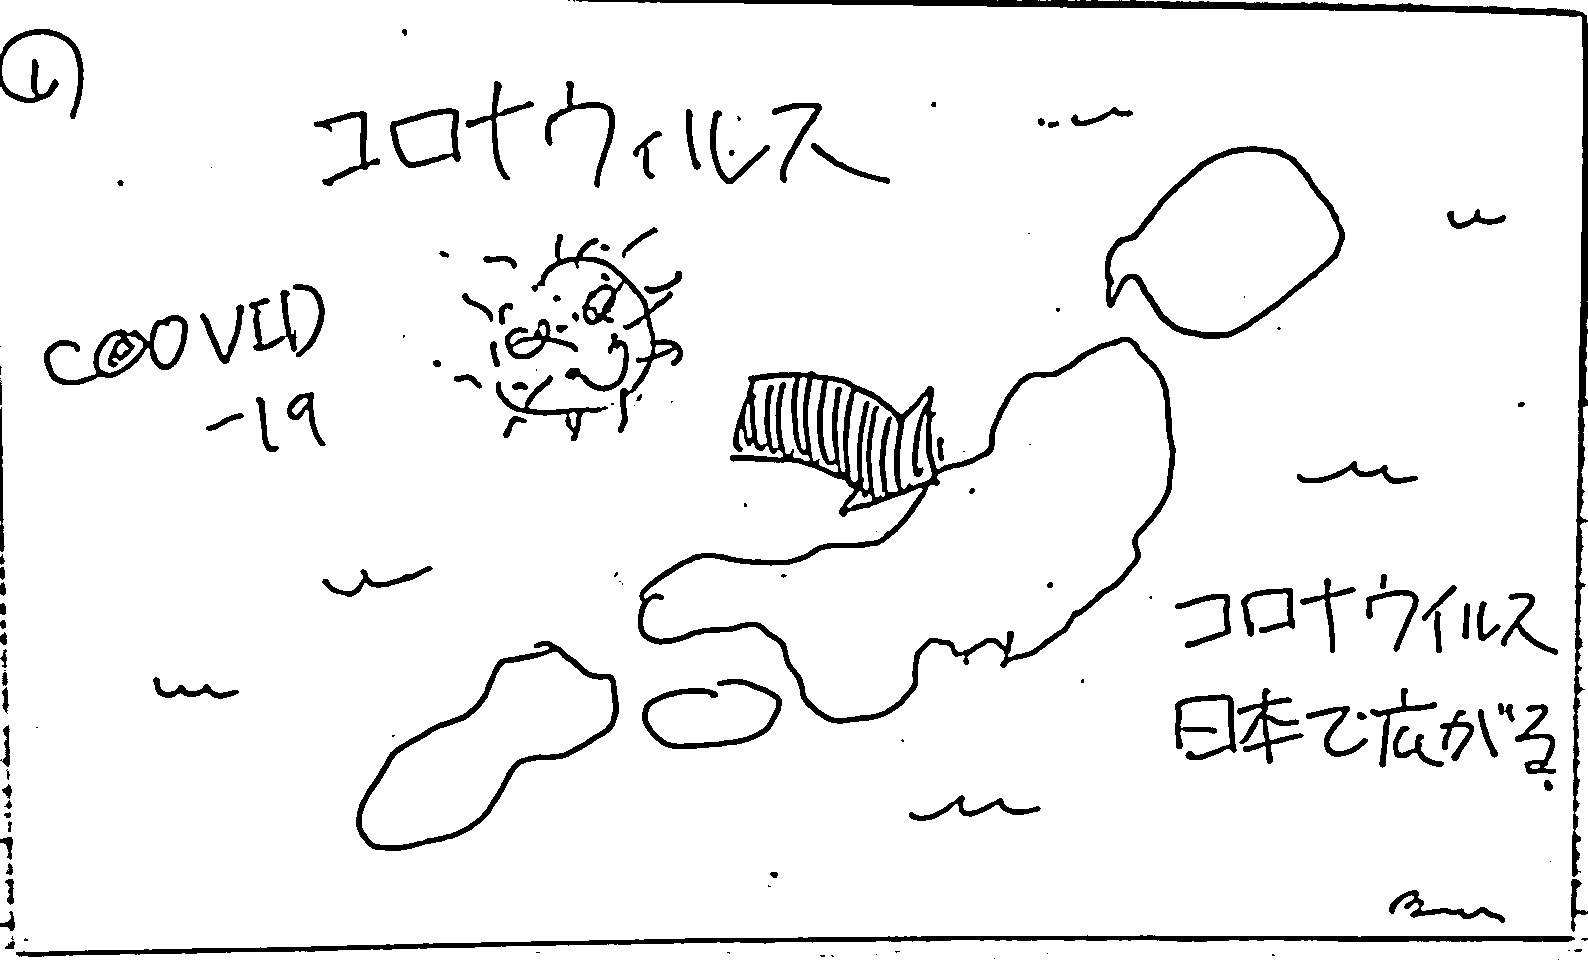 ①
コロナウィルス
COVID
-19
コロナウイルス
日本で広がる.